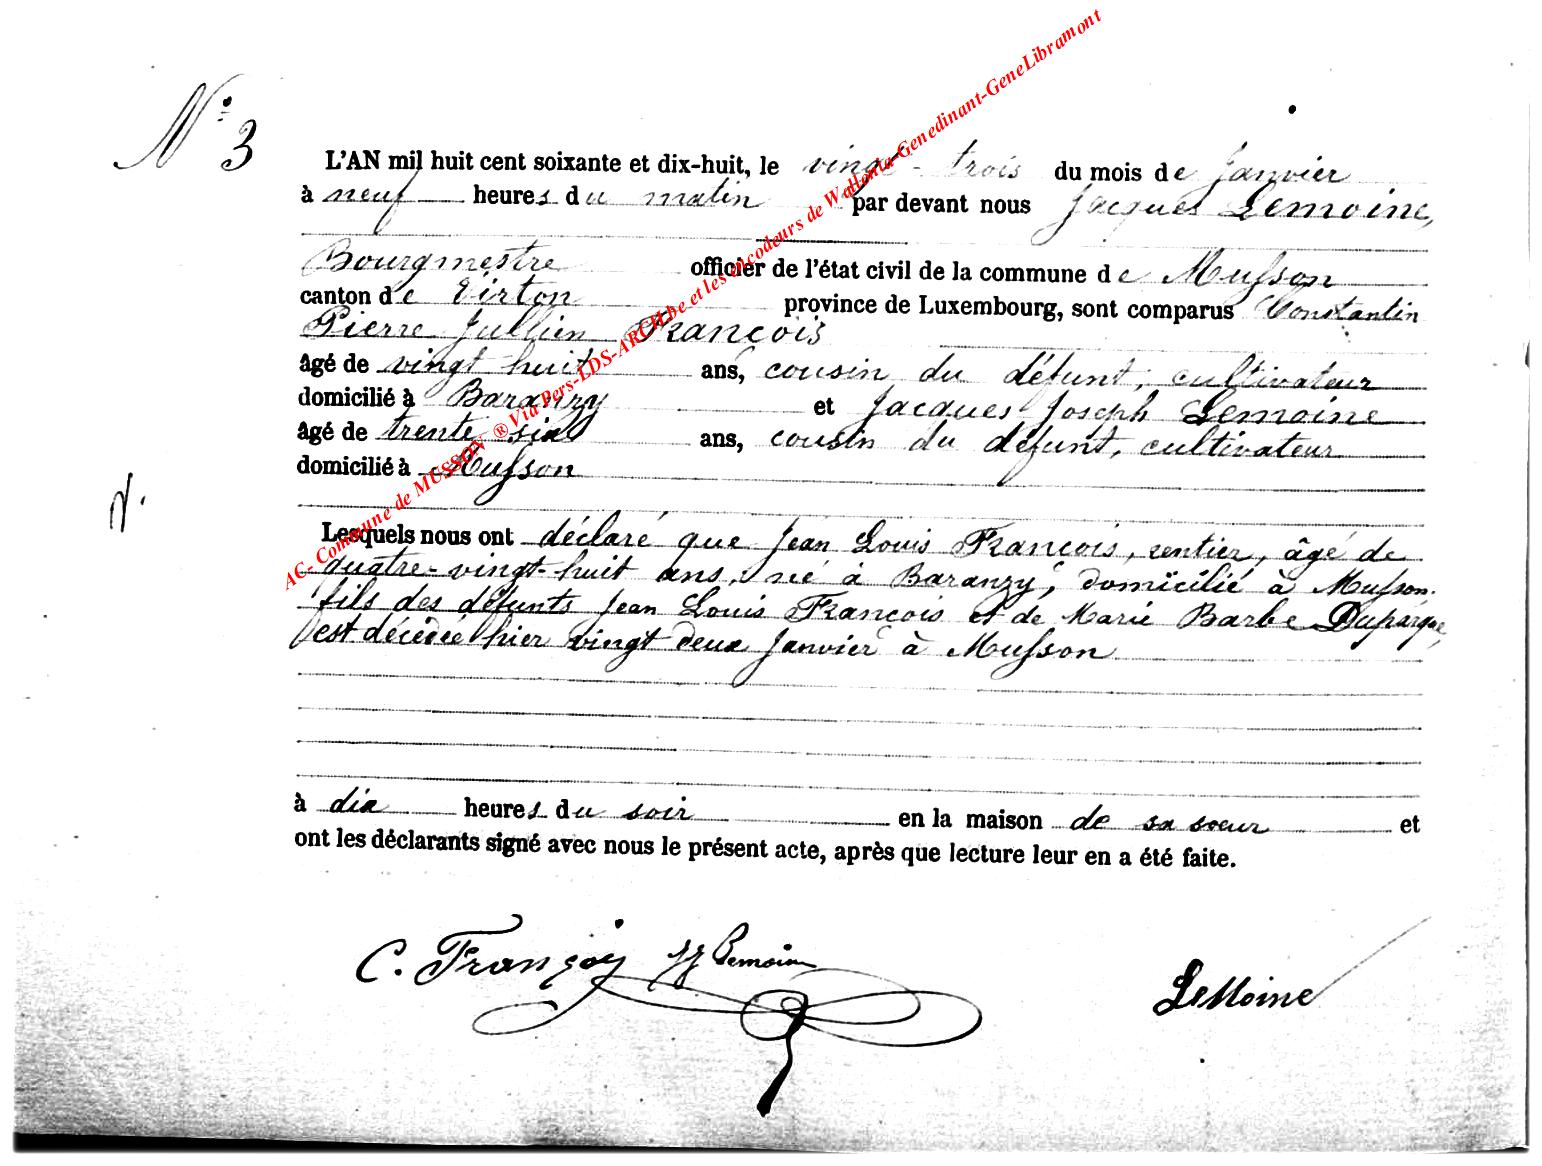 N° 3
L'AN mil huit cent soixante et dix-huit, le vingt-trois du mois de Janvier
à neuf heures du matin par devant nous Jacques Lemoine,
Bourgmestre officier de l'état civil de la commune de Musson
canton de Virton province de Luxembourg, sont comparus Constantin
Pierre Jullien François
âgé de vingt huit ans, cousin du défunt, cultivateur
domicilié à Baranzy et Jacques Joseph Lemoine
âgé de trente six ans, cousin du défunt, cultivateur
domicilié à Musson
Lesquels nous ont déclaré que Jean Louis François, rentier, âgé de
quatre-vingt-huit ans, né à Baranzy, domicilié à Musson.
fils des défunts Jean Louis François et de Marie Barbe Duparque,
est décédée hier vingt deux Janvier à Musson
à dix heures du soir en la maison de sa soeur et
ont les déclarants signé avec nous le présent acte, après que lecture leur en a été faite.
C. François JJ Lemoine
LeMoine
AC- Commune de MUSSON ® Via Pers-LDS-ARCH.be et les encodeurs de Wallonia-Genedinant-GeneLibramont